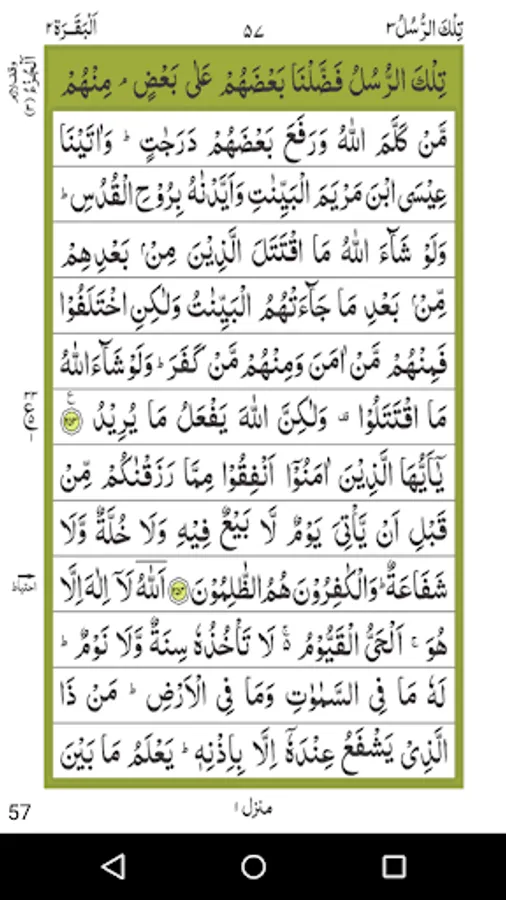 تِلْكَ الرُّسُلُ ٣
٥٧
اَلْبَقَرَة ٢
تِلْكَ الرُّسُلُ فَضَّلْنَا بَعْضَهُمْ عَلٰى بَعْضٍ ۘ مِنْهُمْ
مَّنْ كَلَّمَ اللّٰهُ وَرَفَعَ بَعْضَهُمْ دَرَجٰتٍ ؕ وَاٰتَيْنَا
عِيْسَى ابْنَ مَرْيَمَ الْبَيِّنٰتِ وَاَيَّدْنٰهُ بِرُوْحِ الْقُدُسِ ؕ
وَلَوْ شَآءَ اللّٰهُ مَا اقْتَتَلَ الَّذِيْنَ مِنْۢ بَعْدِهِمْ
مِّنْۢ بَعْدِ مَا جَآءَتْهُمُ الْبَيِّنٰتُ وَلٰكِنِ اخْتَلَفُوْا
فَمِنْهُمْ مَّنْ اٰمَنَ وَمِنْهُمْ مَّنْ كَفَرَ ؕ وَلَوْ شَآءَ اللّٰهُ
مَا اقْتَتَلُوْا ۟ وَلٰكِنَّ اللّٰهَ يَفْعَلُ مَا يُرِيْدُ ﴿٢٥٣﴾
يٰۤاَيُّهَا الَّذِيْنَ اٰمَنُوْۤا اَنْفِقُوْا مِمَّا رَزَقْنٰكُمْ مِّنْ
قَبْلِ اَنْ يَّاْتِىَ يَوْمٌ لَّا بَيْعٌ فِيْهِ وَلَا خُلَّةٌ وَّلَا
شَفَاعَةٌ ؕ وَالْكٰفِرُوْنَ هُمُ الظّٰلِمُوْنَ ﴿٢٥٤﴾ اَللّٰهُ لَاۤ اِلٰهَ اِلَّا
هُوَ ۚ اَلْحَىُّ الْقَيُّوْمُ ۬ۚ لَا تَاْخُذُهٗ سِنَةٌ وَّلَا نَوْمٌ ؕ
لَهٗ مَا فِى السَّمٰوٰتِ وَمَا فِى الْاَرْضِ ؕ مَنْ ذَا
الَّذِىْ يَشْفَعُ عِنْدَهٗۤ اِلَّا بِاِذْنِهٖ ؕ يَعْلَمُ مَا بَيْنَ
منزل ١
57